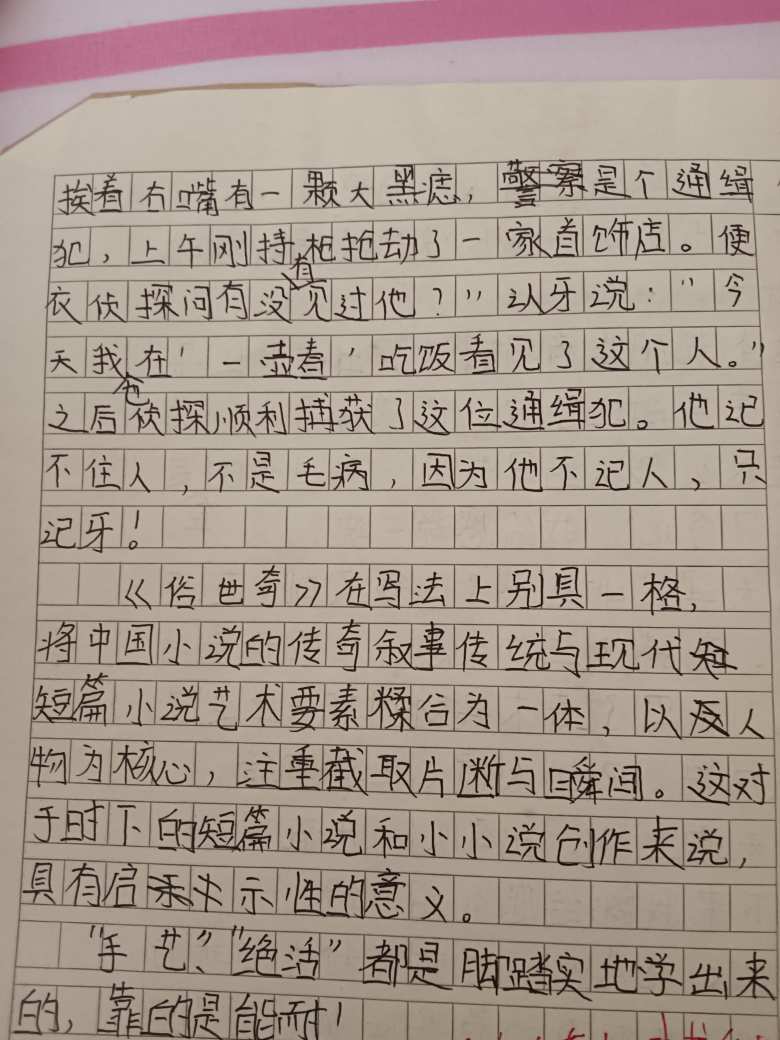 挨着右嘴有一颗大黑痣，警察是个通缉
犯，上午刚持枪抢劫了一家首饰店。便
衣侦探问有没有见过他？”认牙说：“今
天我在‘一壶春’吃饭看见了这个人。”
之后他侦探顺利捕获了这位通缉犯。他记
不住人，不是毛病，因为他不记人，只
记牙！
《俗世奇》在写法上别具一格，
将中国小说的传奇叙事传统与现代
短篇小说艺术要素糅合为一体，以人
物为核心，注重截取片断与瞬间。这对
于时下的短篇小说和小小说创作来说，
具有启示性的意义。
“手艺”、“绝活”都是脚踏实地学出来
的，靠的是能耐！